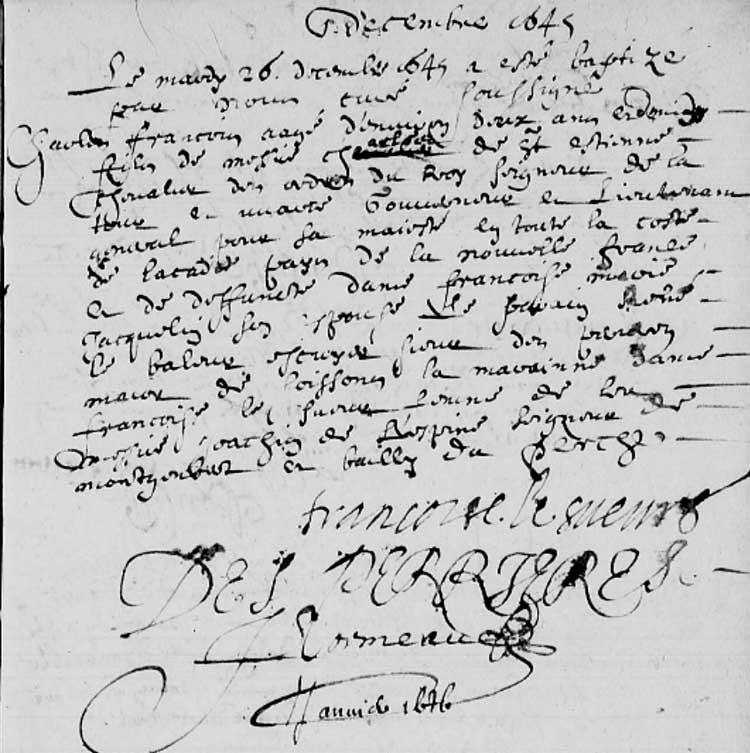 Decembre 1645
Le mardy 26. decembre 1645 a esté baptize
par nous curé soussigné
Charles françois aagé d'environ deux ans et demy
filz de messire Charles de St estienne
chevalier des ordres du Roy seigneur de la
tour et gouverneur et Lieutenant
general pour sa majeste en toute la coste
de lacadie pays de la nouvelle france
et de deffuncte dame francoise marie
Jacquelin son espouse Le parain
le baleur escuyer sieur des
major de soissons la marainne dame
francoise le sueur femme de
messire Joachin de seigneur de
et bailly du perche
francoise . le sueur
DES PERRIERES
Janvier 1646